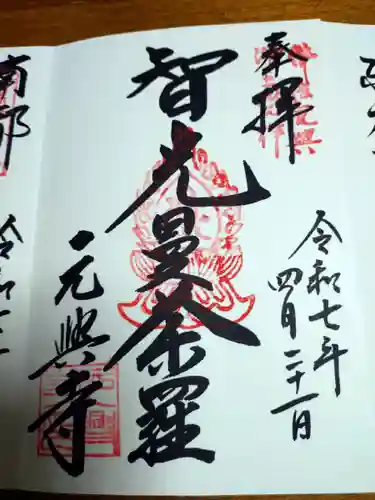 奉拝
令和七年
四月二十一日
智光曼荼羅
元興寺
南都